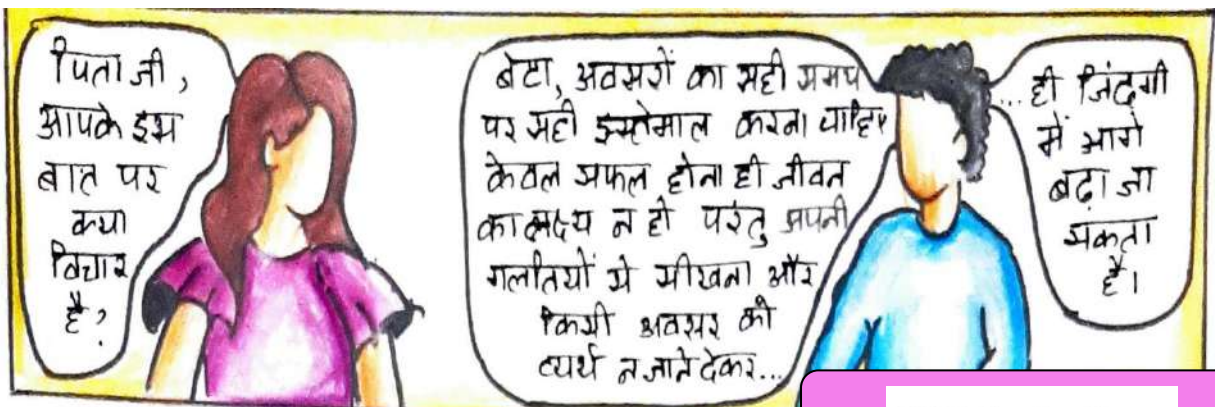 पिता जी,
आपके इस
बात पर
क्या
विचार
है?
बेटा, अवसरों का सही समय
पर सही इस्तेमाल करना चाहिए
केवल सफल होना ही जीवन
का लक्ष्य न हो परंतु अपनी
गलतियों से सीखना और
किसी अवसर को
व्यर्थ न जाने देकर...
...ही जिंदगी
में आगे
बढ़ा जा
सकता
है।